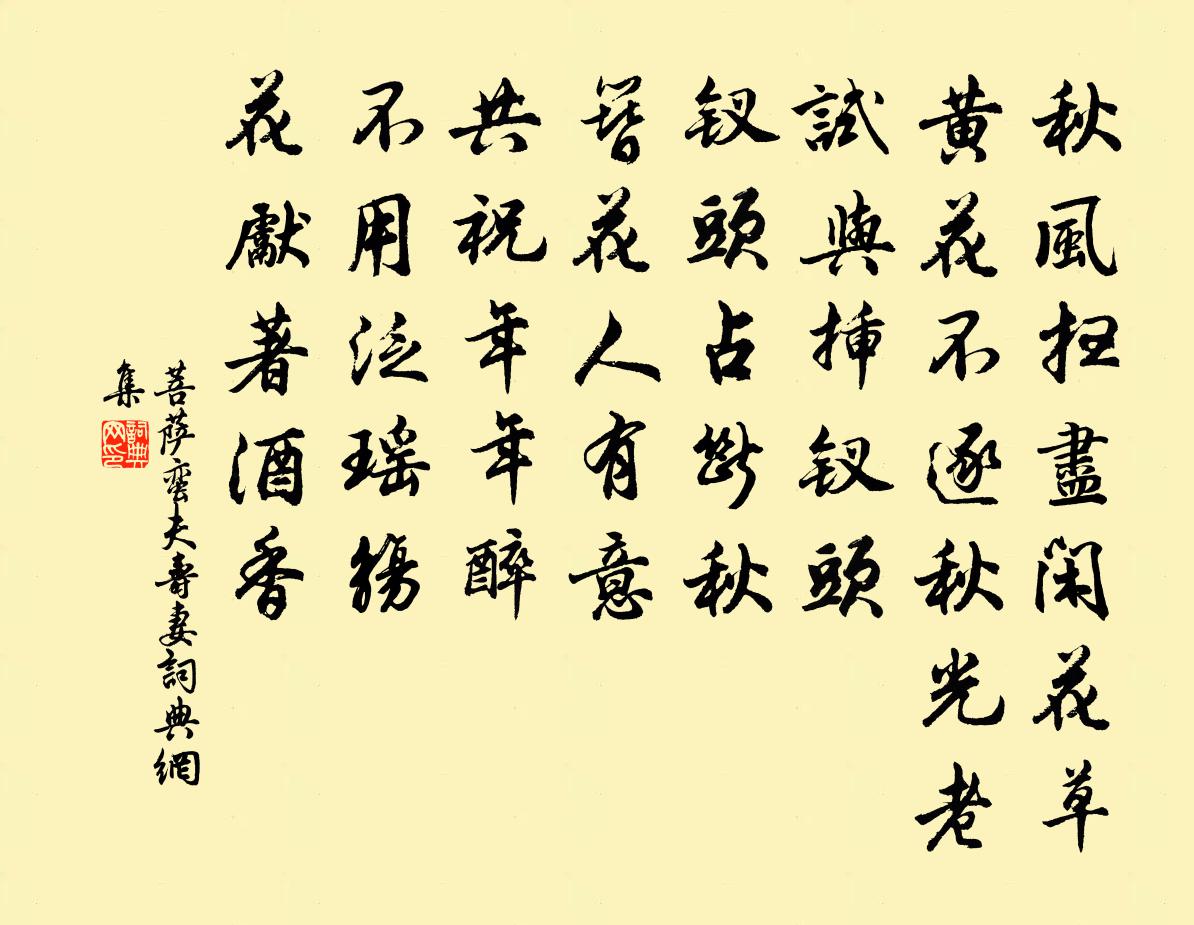 秋風扫盡閑花草
黄花不逐秋光老
試與插钗頭
钗頭占斷秋
簪花人有意
共祝年年醉
不用泛瑶觴
花獻著酒香
菩萨蛮夫壽妻詞典網
集
詞典网印